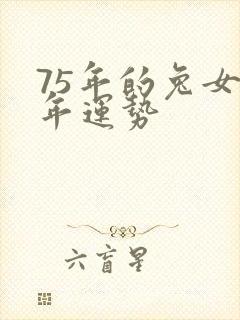 75年的兔女
年運势
六盲星